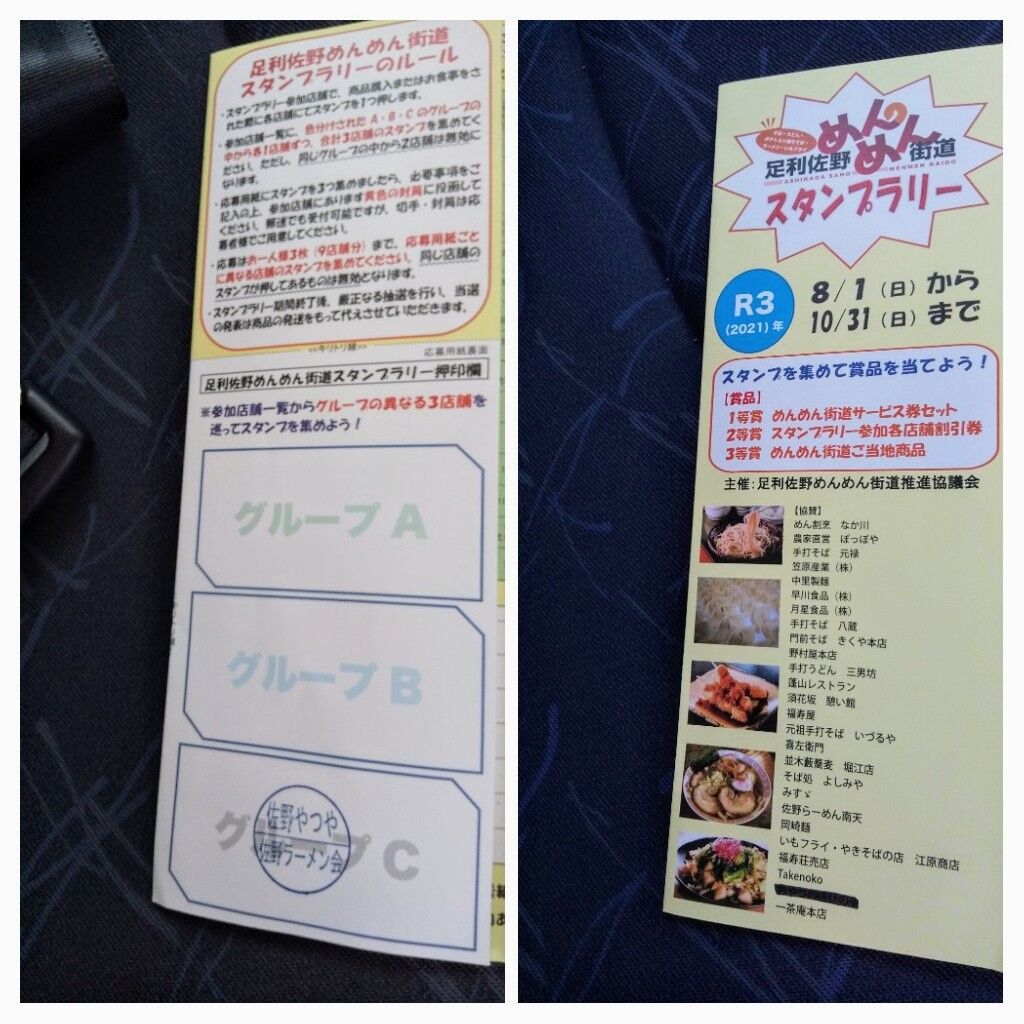 足利佐野めんめん街道
スタンプラリーのルール
・スタンプラリー参加店舗で、商品購入またはお食事をさ
れた際に各店舗にてスタンプを1つ押します。
・参加店舗一覧に、色分けされたA・B・Cのグループの
中から各1店舗ずつ、合計3店舗のスタンプを集めてく
ださい。ただし、同じグループの中から2店舗は無効に
なります。
・応募用紙にスタンプを3つ集めましたら、必要事項をご
記入の上、参加店舗にあります黄色の封筒に投函して
ください。郵送でも受付可能ですが、切手・封筒は応
募者様でご用意してください。
・応募はお一人様3枚(9店舗分)まで、応募用紙ごと
に異なる店舗のスタンプを集めてください。同じ店舗の
スタンプが押してあるものは無効となります。
・スタンプラリー期間終了後、厳正なる抽選を行い、当選
の発表は商品の発送をもって代えさせていただきます。
<<キリトリ線>>
応募用紙裏面
足利佐野めんめん街道スタンプラリー押印欄
※参加店舗一覧からグループの異なる3店舗を
巡ってスタンプを集めよう!
グループ A
グループ B
グループ C
佐野やつや
佐野ラーメン会
そば・うどん・
ポテト入り焼きそば・
ラーメン・いもフライ
足利佐野 めんめん 街道
ASHIKAGA SANO MENMEN KAIDO
スタンプラリー
R3
(2021)年
8/1(日)から
10/31(日)まで
スタンプを集めて賞品を当てよう!
【賞品】
1等賞 めんめん街道サービス券セット
2等賞 スタンプラリー参加各店舗割引券
3等賞 めんめん街道ご当地商品
主催:足利佐野めんめん街道推進協議会
【協賛】
めん割烹 なか川
農家直営 ぽっぽや
手打そば 元禄
笠原産業(株)
中里製麺
早川食品(株)
月星食品(株)
手打そば 八蔵
門前そば きくや本店
野村屋本店
手打うどん 三男坊
蓬山レストラン
須花坂 憩い館
福寿屋
元祖手打そば いづるや
喜左衛門
並木藪蕎麦 堀江店
そば処 よしみや
みすゞ
佐野らーめん南天
岡崎麺
いもフライ・やきそばの店 江原商店
福寿荘売店
Takenoko
一茶庵本店